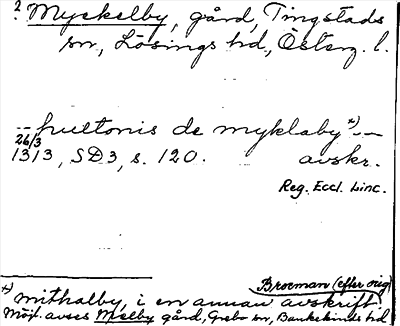 ? Myckelby, gård, Tingstads
sn, Lösings hd, Österg. l.
-- pultonis de myklaby *) --
26/3
1313, SD3, s. 120. avskr.
Reg. Eccl. Linc.
Broeman (efter orig)
*) mithalby, i en annan avskrift.
Möjl. avses Melby gård, Grebo sn, Bankekinds hd